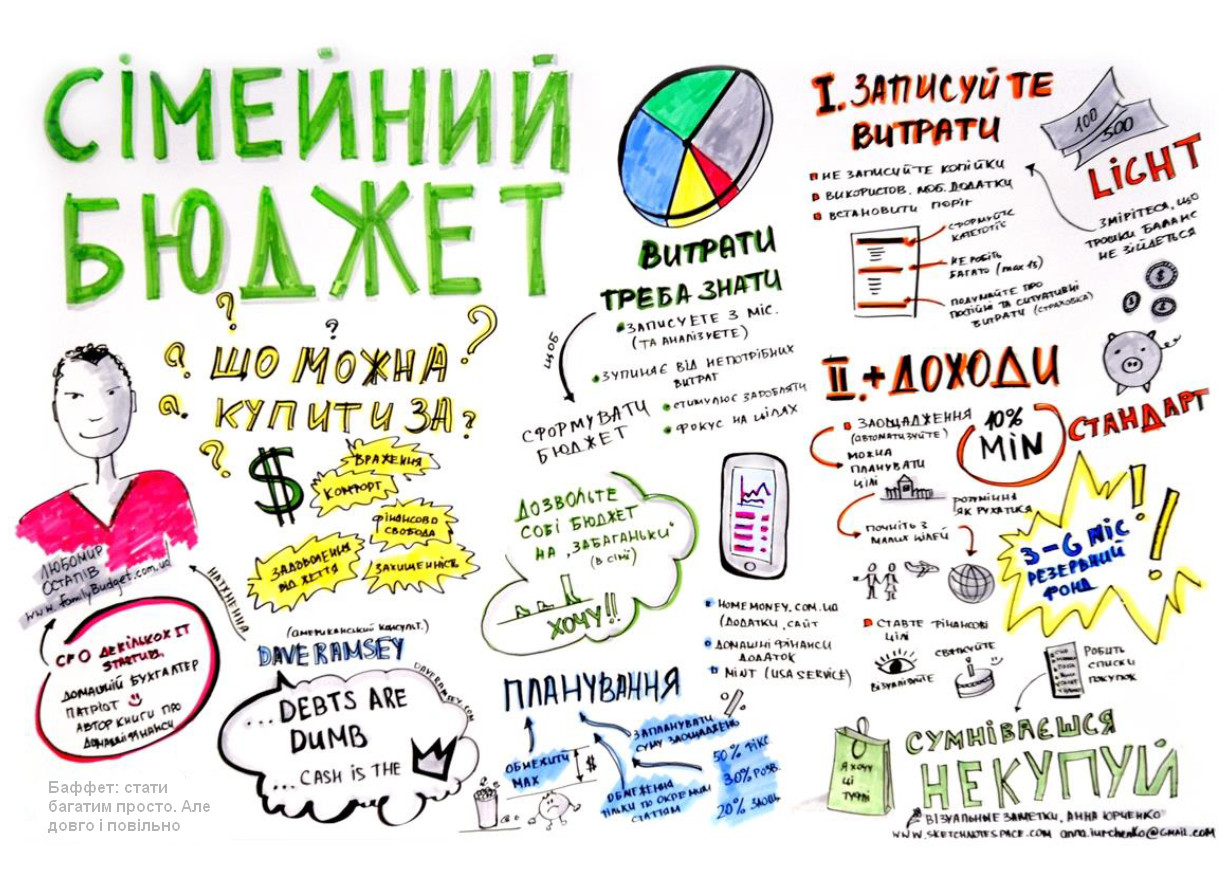 СІМЕЙНИЙ
БЮДЖЕТ
ЩО МОЖНА
КУПИТИ ЗА
?
$
ВРАЖЕННЯ
КОМФОРТ
ФІНАНСОВА
СВОБОДА
ЗАДОВОЛЕННЯ
ВІД ЖИТТЯ
ЗАХИЩЕННІСТЬ
ЛЮБОМИР
ОСТАПІВ
www.familyBudget.com.ua
НАТХНЕННЯ
CFO ДЕКІЛЬКОХ IT
STARTUP
ДОМАШНІЙ БУХГАЛТЕР
ПАТРІОТ
АВТОР КНИГИ ПРО
ДОМАШНІ ФІНАНСИ
(американський консульт.)
DAVE RAMSEY
DAVERAMSEY.COM
...DEBTS ARE
DUMB
...CASH IS THE
Баффет: стати
багатим просто. Але
довго і повільно
ВИТРАТИ
ТРЕБА ЗНАТИ
ЗАПИСУЄТЕ 3 МІС.
(ТА АНАЛІЗУЄТЕ)
ЗУПИНЯЄ ВІД НЕПОТРІБНИХ
ВИТРАТ
СТИМУЛЮЄ ЗАРОБЛЯТИ
ФОКУС НА ЦІЛЯХ
СФОРМУВАТИ
БЮДЖЕТ
ДОЗВОЛЬТЕ
СОБІ БЮДЖЕТ
НА „ЗАБАГАНЬКИ"
(В СІМ'Ї)
ХОЧУ!!
HOMEMONEY.COM.UA
(ДОДАТКИ, САЙТ
ДОМАШНІ ФІНАНСИ
ДОДАТОК
MINT (USA SERVICE)
ПЛАНУВАННЯ
ЗАПЛАНУВАТИ
СУМУ ЗАОЩАДЖЕНЬ
ОБМЕЖИТИ
MAX
$
ОБМЕЖЕННЯ
ТІЛЬКИ ПО ОКРЕМИМ
СТАТТЯМ
50% ФІКС
30% РОЗВ.
20% ЗАОЩ.
I. ЗАПИСУЙТЕ
ВИТРАТИ
НЕ ЗАПИСУЙТЕ КОПІЙКИ
ВИКОРИСТОВ. МОБ. ДОДАТКИ
ВСТАНОВИТИ ПОРІГ
100
500
LIGHT
ЗМІРІТЕСЯ, ЩО
ТРОШКИ БАЛАНС
НЕ ЗІЙДЕТЬСЯ
СФОРМУЙТЕ
КАТЕГОРІЇ
НЕ РОБІТЬ
БАГАТО (max 15)
ПОДУМАЙТЕ ПРО
ПОСТІЙНІ ТА СИТУАТИВНІ
ВИТРАТИ (СТРАХОВКА)
II. + ДОХОДИ
СТАНДАРТ
ЗАОЩАДЖЕННЯ
(АВТОМАТИЗУЙТЕ)
10%
MIN
МОЖНА
ПЛАНУВАТИ
ЦІЛІ
РОЗУМІННЯ
ЯК РУХАТИСЯ
ПОЧНІТЬ З
МАЛИХ ЦІЛЕЙ
3-6 МІС
РЕЗЕРВНИЙ
ФОНД
СТАВТЕ ФІНАНСОВІ
ЦІЛІ
ВІЗУАЛІЗУЙТЕ
СВЯТКУЙТЕ
РОБІТЬ
СПИСКИ
ПОКУПОК
Я ХОЧУ
ЦІ
ТУФЛІ
СУМНІВАЄШСЯ
НЕ КУПУЙ
ВІЗУАЛЬНЫЕ ЗАМЕТКИ, АННА ЮРЧЕНКО"
WWW.SKETCHNOTESPACE.COM anna.iurchenko@GMAIL.COM